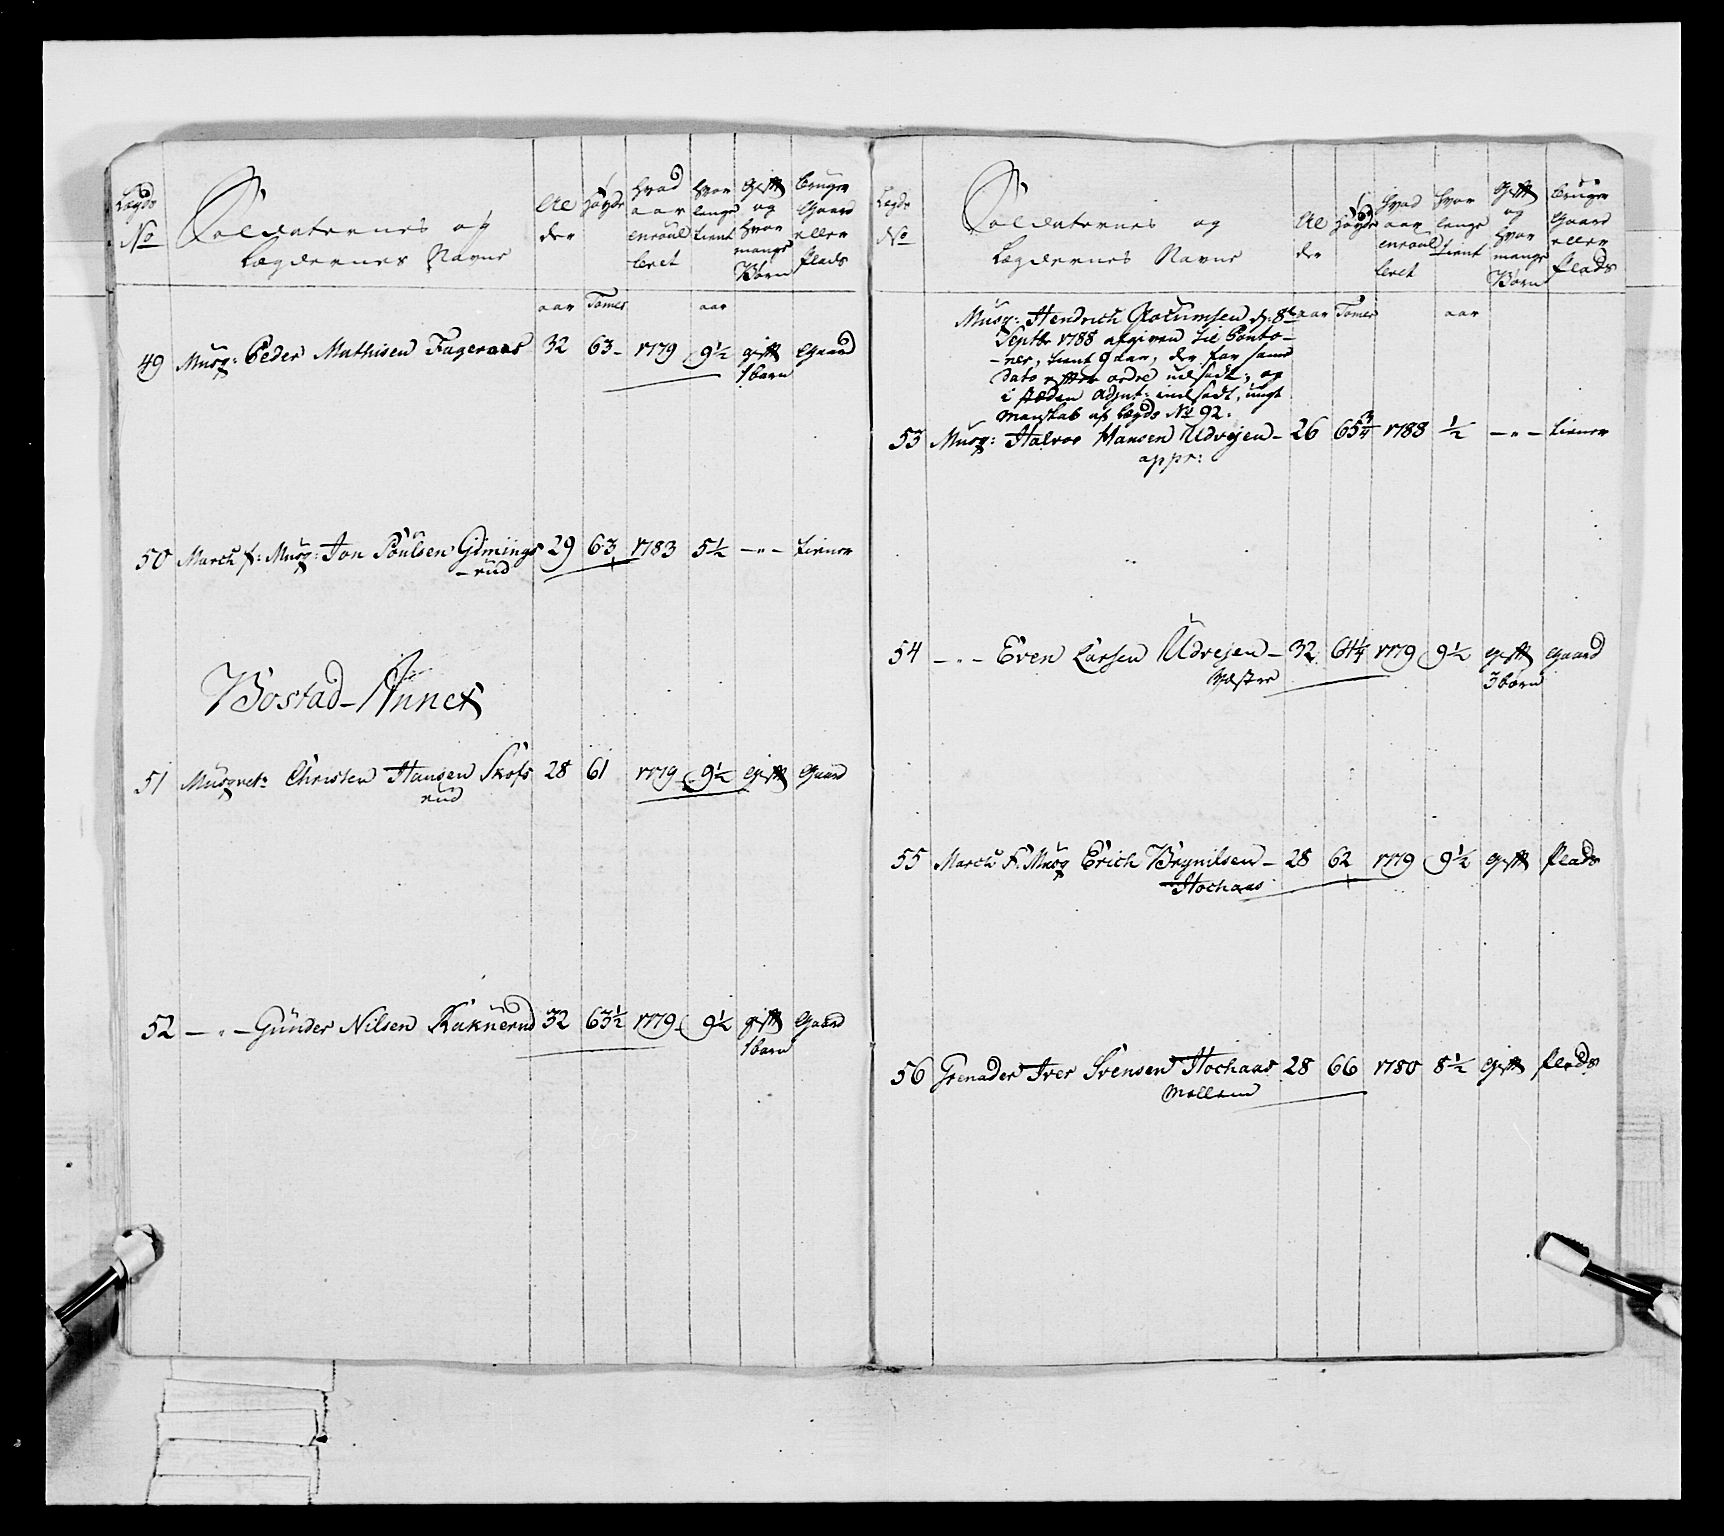 Lægds No
Soldaternes og Lægdernes Navne
Alder
Høyde
Hvad aar enroulleret
Hvor længe tient
Gift og Hvor mange Børn
Bruger Gaard eller Plads
aar Tomer aar
49 Musq: Peder Mathisen Fageraas 32 63- 1779 9½ gift Gaard
1 barn
50 March f: Musq: Jon Poulsen 29 63 1783 5½ -"- tiener
-rud
Bostad-Annex
51 Musqvet: Christen Hansen Skofs 28 61 1779 9½ Gift Gaard
rud
52 -"- Gunder Nilsen Kaknerud 32 63½ 1779 9½ gift Gaard
1 barn
Lægds No
Soldaternes og Lægdernes Navne
Alder
Høyde
Hvad aar enroulleret
Hvor længe tient
Gift og Hvor mange Børn
Bruger Gaard eller Plads
Musq: Hendrich d: 8de aar Tomer aar
Septbr 1788 afgiven til Ponto-
-ner, tient 9 aar, der for samme
Dato efter ordre udsadt, og
i stæden Adjut: indsadt, ungt
Manskab af Lægds No 92.
53 Musq: Halvor Hansen Udvejen- 26 65¾ 1788 ½ -"- tiener
appr:
54 -"- Even Larsen Udvejen- 32 64¼ 1779 9½ gift Gaard
Westre 3 børn
55 March f: Musq Erich Brynilsen- 28 62 1779 9½ gift Plads
Hochaas
56 Grenader Iver Svensen Hochaas 28 66 1780 8½ Gift Plads
Mellem